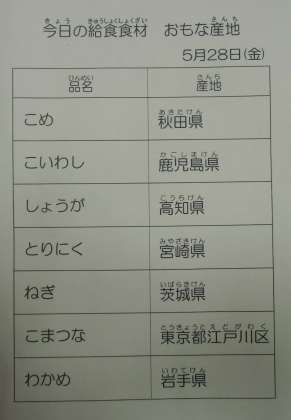 今日の給食食材 おもな産地
5月28日(金)
品名 産地
こめ 秋田県
こいわし 鹿児島県
しょうが 高知県
とりにく 宮崎県
ねぎ 茨城県
こまつな 東京都江戸川区
わかめ 岩手県